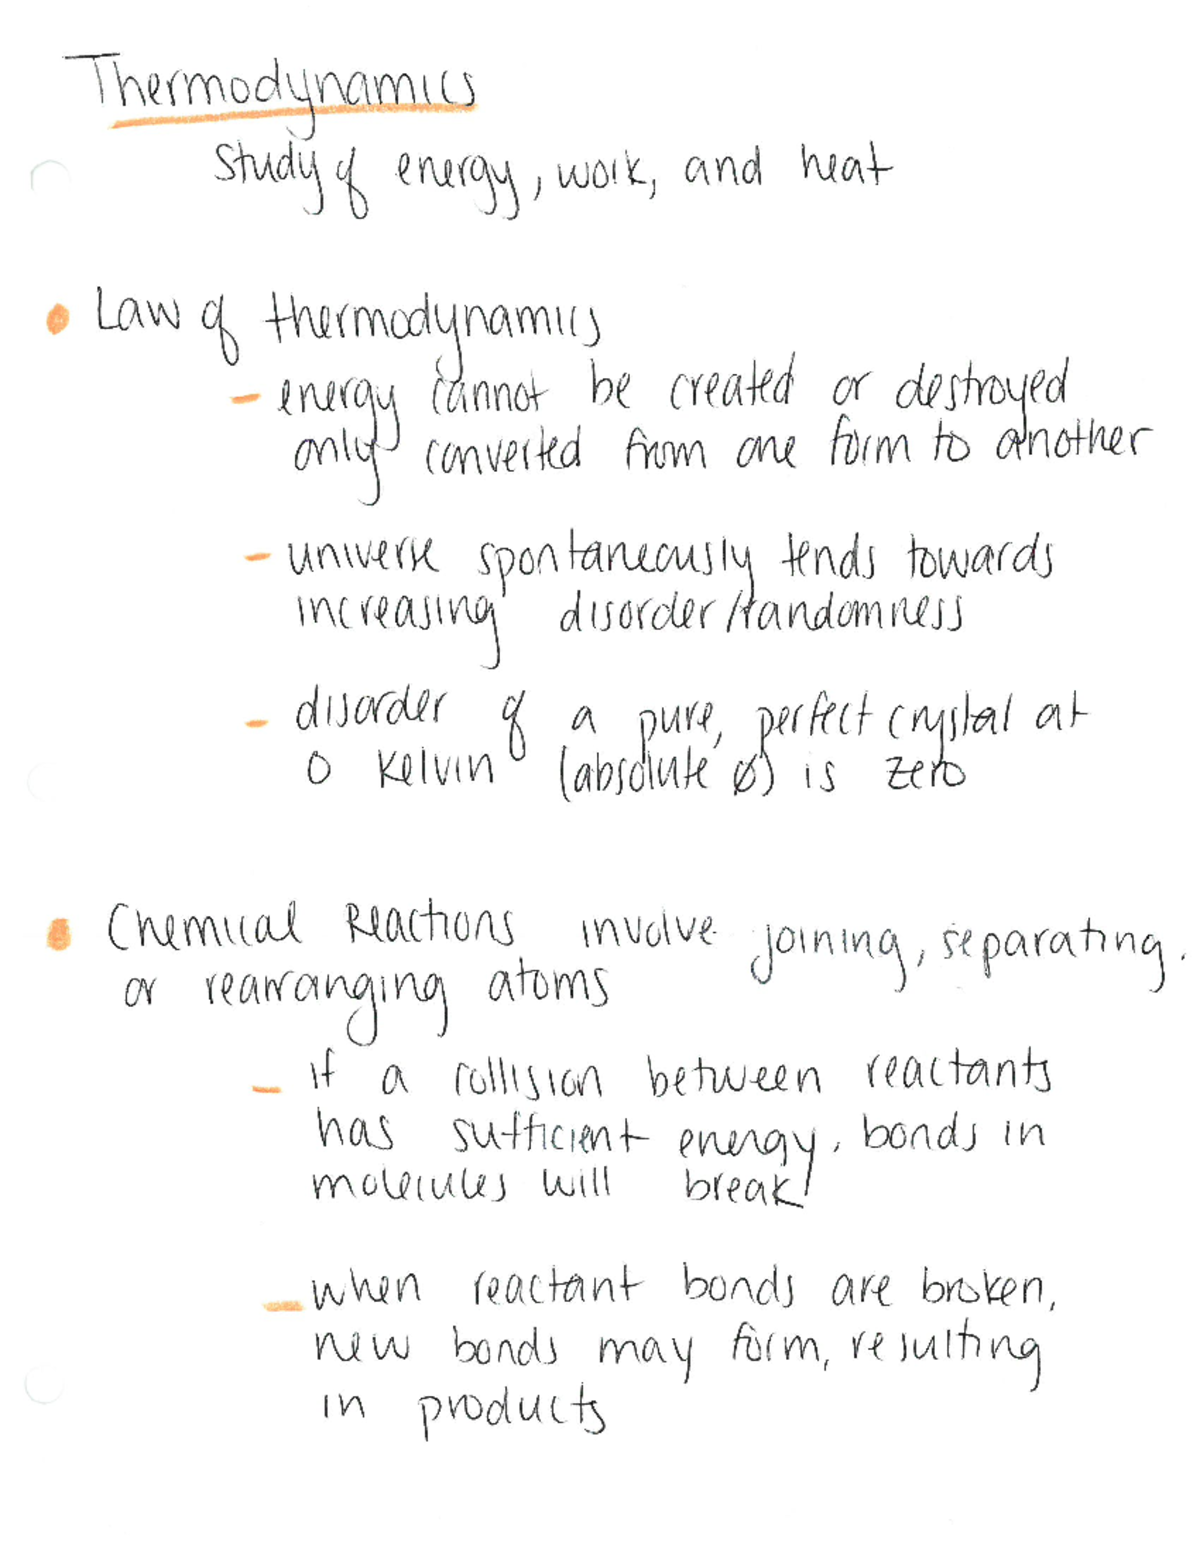 Thermodynamics
study of energy, work, and heat
• Law of thermodynamics
- energy cannot be created or destroyed
only converted from one form to another
- universe spontaneously tends towards
increasing disorder/randomness
- disorder of a pure, perfect crystal at
0 Kelvin (absolute Ø) is zero
• Chemical Reactions involve joining, separating,
or rearranging atoms
- if a collision between reactants
has sufficient energy, bonds in
molecules will break
- when reactant bonds are broken,
new bonds may form, resulting
in products